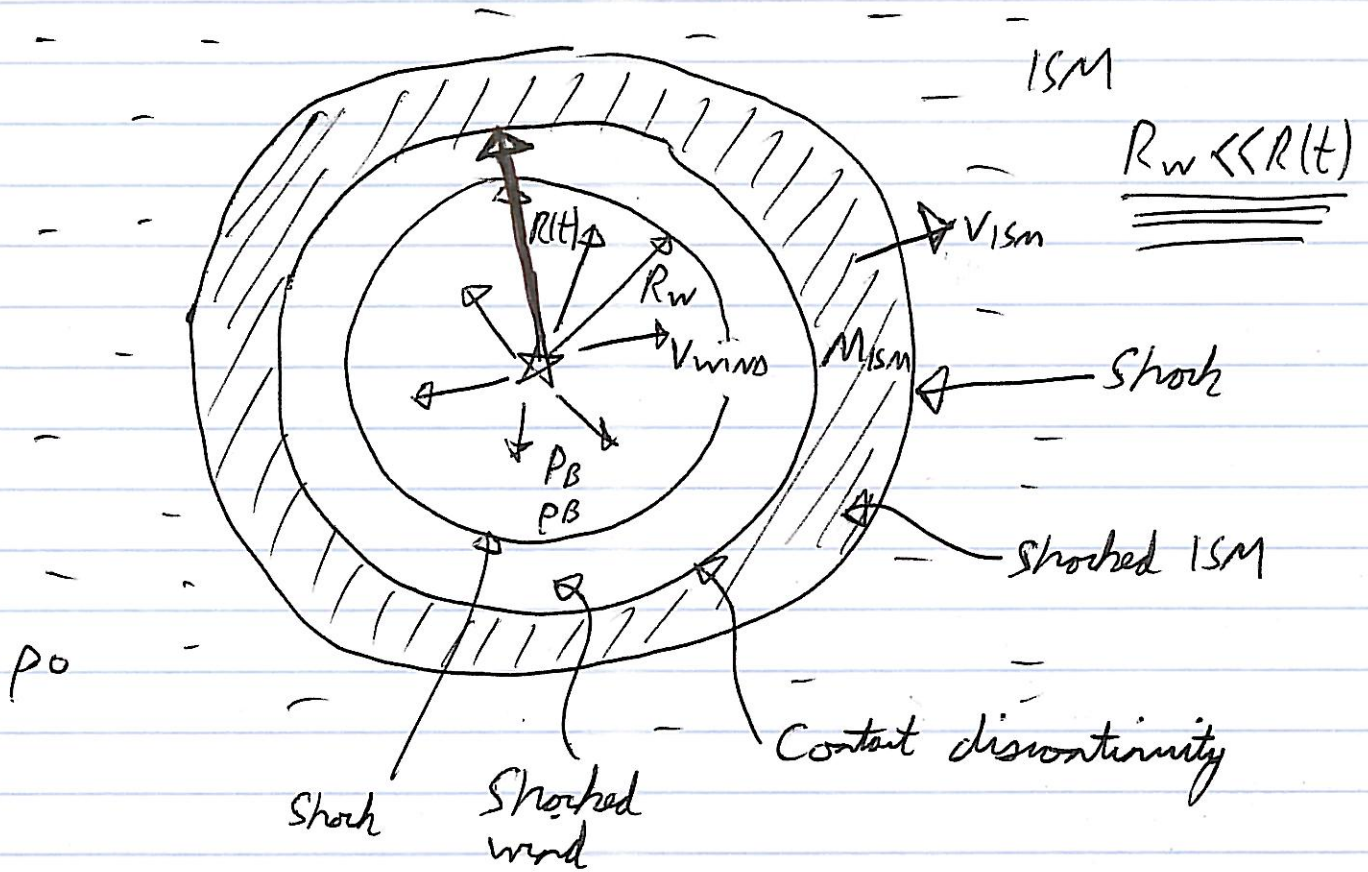 ISM
R_W << R(t)
R(t)
V_ISM
R_W
V_WIND
M_ISM
Shock
P_B
ρ_B
Shocked ISM
ρ_0
Contact discontinuity
Shock
Shocked
wind